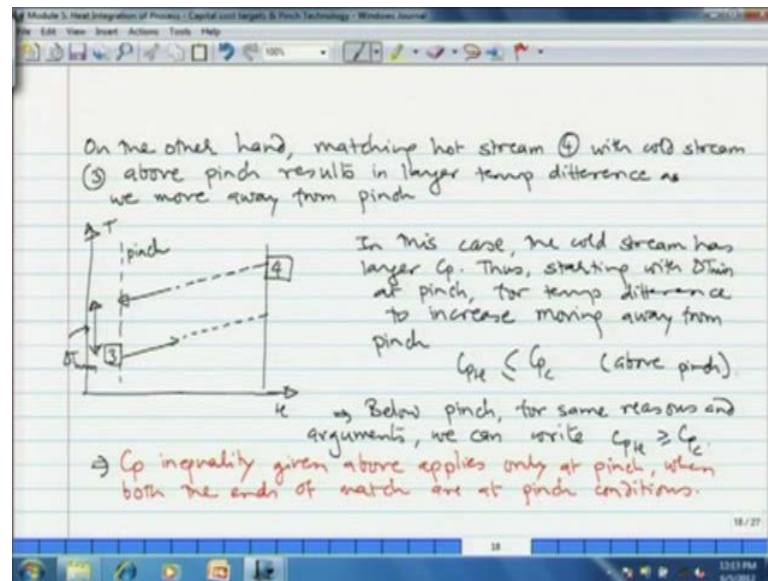 Module 5. Heat Integration of Process - Capital cost targets & Pinch Technology - Windows Journal
File Edit View Insert Actions Tools Help
100%
On the other hand, matching hot stream ④ with cold stream
③ above pinch results in larger temp difference as
we move away from pinch
T
pinch
4
3
ΔTmin
H
In this case, the cold stream has
larger Cp. Thus, starting with ΔTmin
at pinch, for temp difference
to increase moving away from
pinch
CpH ≤ Cpc (above pinch).
⇒ Below pinch, for same reasons and
arguments, we can write CpH ≥ Cpc.
⇒ Cp inequality given above applies only at pinch, when
both the ends of match are at pinch conditions.
18 / 27
18
12:13 PM